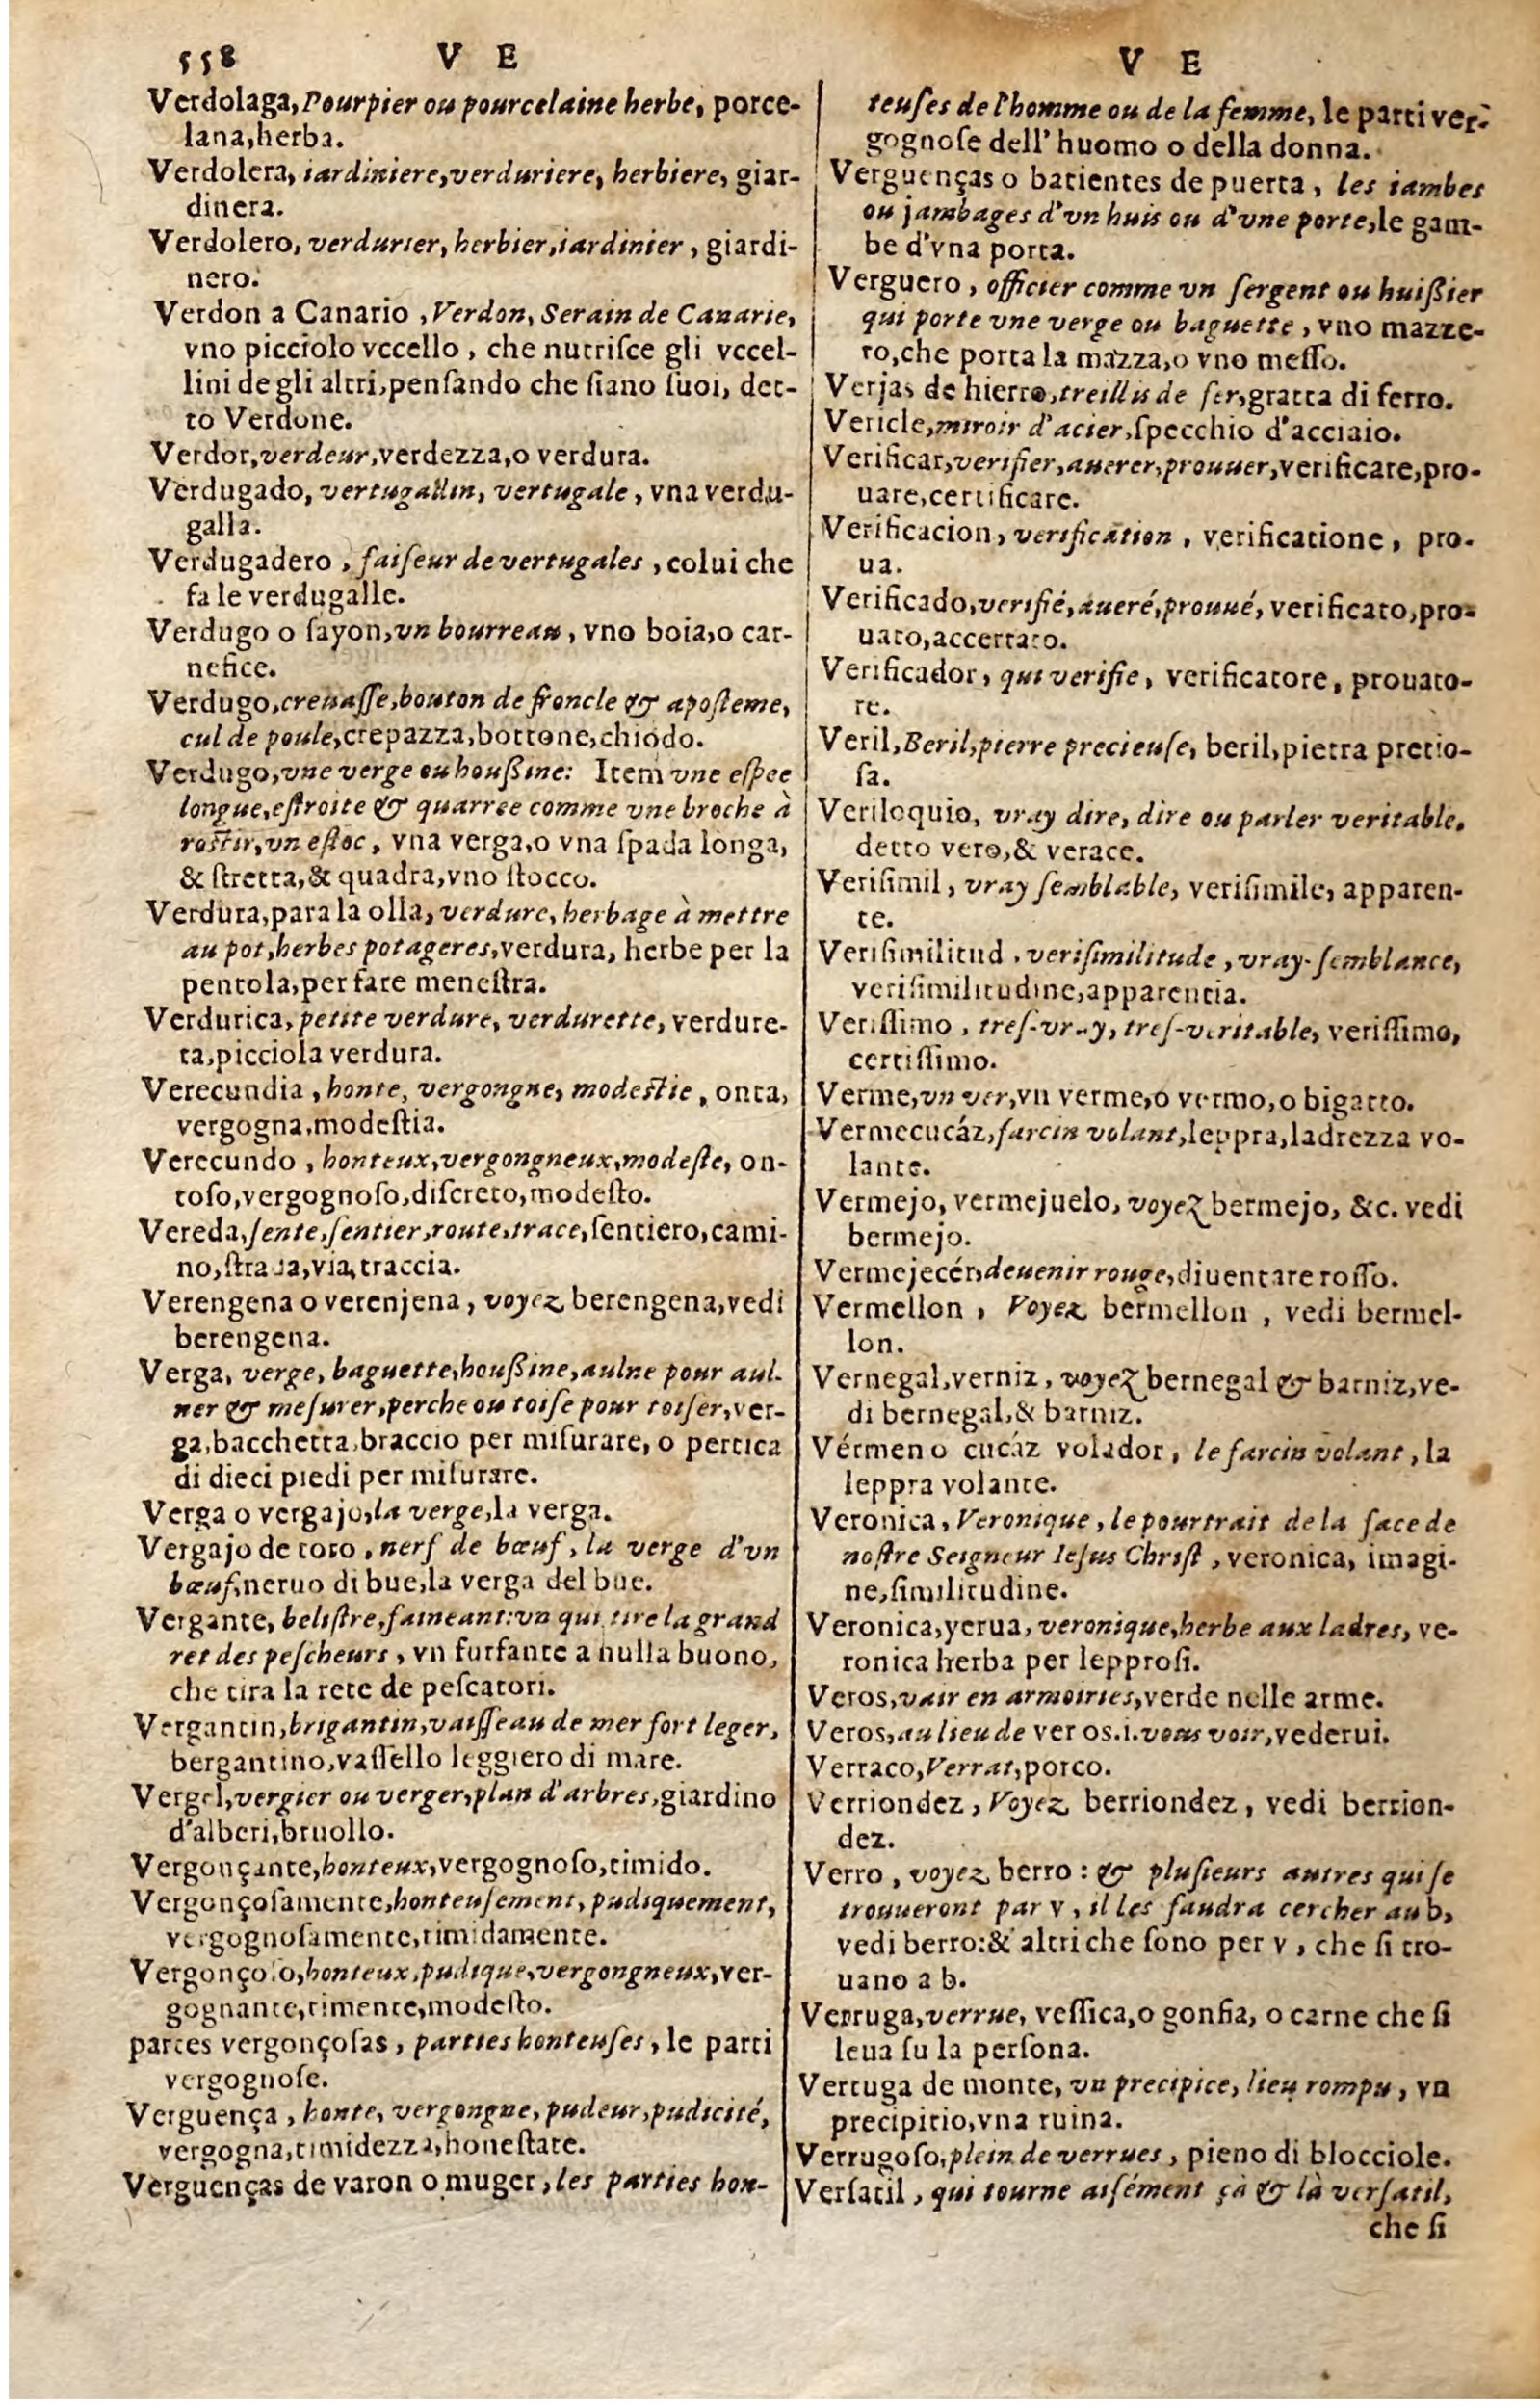 558 V E
Verdolaga, Pourpier ou pourcelaine herbe, porce-
lana,herba.
Verdolera, iardiniere,verduriere, herbiere, giar-
dinera.
Verdolero, verdurier, herbier,iardinier, giardi-
nero.
Verdon a Canario, Verdon, Serain de Canarie,
vno picciolo vccello, che nutrisce gli vccel-
lini de gli altri,pensando che siano suoi, det-
to Verdone.
Verdor,verdeur,verdezza,o verdura.
Verdugado, vertugallin, vertugale, vna verdu-
galla.
Verdugadero, faiseur de vertugales, colui che
fa le verdugalle.
Verdugo o sayon,vn bourreau, vno boia,o car-
nefice.
Verdugo,creuasse,bouton de froncle & aposteme,
cul de poule,crepazza,bottone,chiodo.
Verdugo,vne verge ou houßine: Item vne espee
longue,estroite & quarree comme vne broche à
rostir,vn estoc, vna verga,o vna spada longa,
& stretta,& quadra,vno stocco.
Verdura,para la olla, verdure, herbage à mettre
au pot,herbes potageres,verdura, herbe per la
pentola,per fare menestra.
Verdurica, petite verdure, verdurette, verdure-
ta,picciola verdura.
Verecundia, honte, vergongne, modestie, onta,
vergogna,modestia.
Verecundo, honteux,vergongneux,modeste, on-
toso,vergognoso,discreto,modesto.
Vereda,sente,sentier,route,trace,sentiero,cami-
no,strada,via,traccia.
Verengena o verenjena, voyez berengena,vedi
berengena.
Verga, verge, baguette,houßine,aulne pour aul-
ner & mesurer,perche ou toise pour toiser,ver-
ga,bacchetta,braccio per misurare, o pertica
di dieci piedi per misurare.
Verga o vergajo,la verge,la verga.
Vergajo de toro, nerf de bœuf, la verge d'vn
bœuf,neruo di bue,la verga del bue.
Vergante, belistre,faineant:vn qui tire la grand
ret des pescheurs, vn furfante a nulla buono,
che tira la rete de pescatori.
Vergantin,brigantin,vaisseau de mer fort leger,
bergantino,vassello leggiero di mare.
Vergel,vergier ou verger,plan d'arbres,giardino
d'alberi,bruollo.
Vergonçante,honteux,vergognoso,timido.
Vergonçosamente,honteusement, pudiquement,
vergognosamente,timidamente.
Vergonçoso,honteux,pudique,vergongneux,ver-
gognante,timente,modesto.
partes vergonçosas, parties honteuses, le parti
vergognose.
Verguença, honte, vergongne, pudeur,pudicité,
vergogna,timidezza,honestate.
Verguenças de varon o muger, les parties hon-
V E
teuses de l'homme ou de la femme, le parti ver-
gognose dell' huomo o della donna.
Verguenças o batientes de puerta, les iambes
ou jambages d'vn huis ou d'vne porte,le gam-
be d'vna porta.
Verguero, officier comme vn sergent ou huißier
qui porte vne verge ou baguette, vno mazze-
ro,che porta la mazza,o vno messo.
Verjas de hierro,treillis de fer,gratta di ferro.
Vericle,miroir d'acier,specchio d'acciaio.
Verificar,verifier,auerer,prouuer,verificare,pro-
uare,certificare.
Verificacion, verification, verificatione, pro-
ua.
Verificado,verifié,aueré,prouué, verificato,pro-
uato,accertato.
Verificador, qui verifie, verificatore, prouato-
re.
Veril,Beril,pierre precieuse, beril,pietra pretio-
sa.
Veriloquio, vray dire, dire ou parler veritable,
detto vero,& verace.
Verisimil, vray semblable, verisimile, apparen-
te.
Verisimilitud, verisimilitude, vray-semblance,
verisimilitudine,apparentia.
Verissimo, tres-vray, tres-veritable, verissimo,
certissimo.
Verme,vn ver,vn verme,o vermo,o bigatto.
Vermecucáz,farcin volant,leppra,ladrezza vo-
lante.
Vermejo, vermejuelo, voyez bermejo, &c. vedi
bermejo.
Vermejecér,deuenir rouge,diuentare rosso.
Vermellon, Voyez bermellon, vedi bermel-
lon.
Vernegal,verniz, voyez bernegal & barniz,ve-
di bernegal,& barniz.
Vérmen o cucáz volador, le farcin volant, la
leppra volante.
Veronica, Veronique, le pourtrait de la face de
nostre Seigneur Iesus Christ, veronica, imagi-
ne,similitudine.
Veronica,yerua, veronique,herbe aux ladres, ve-
ronica herba per lepprosi.
Veros,vair en armoiries,verde nelle arme.
Veros,au lieu de ver os.i.vous voir,vederui.
Verraco,Verrat,porco.
Verriondez, Voyez berriondez, vedi berrion-
dez.
Verro, voyez berro: & plusieurs autres qui se
trouueront par v, il les faudra cercher au b,
vedi berro:& altri che sono per v, che si tro-
uano a b.
Verruga,verrue, vessica,o gonfia, o carne che si
leua su la persona.
Verruga de monte, vn precipice, lieu rompu, vn
precipitio,vna ruina.
Verrugoso,plein de verrues, pieno di blocciole.
Versatil, qui tourne aisément çà & là versatil,
che si